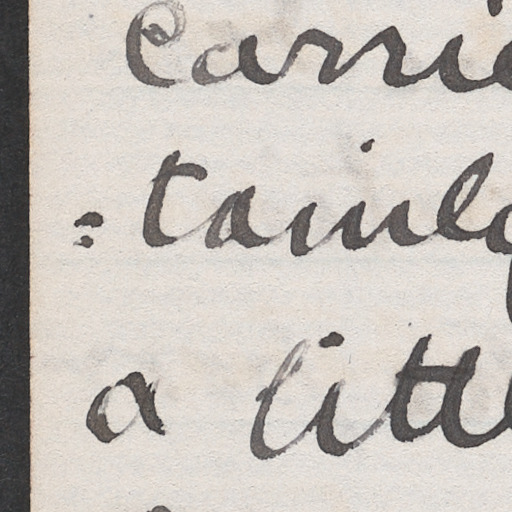 carrie
=tainly
a little